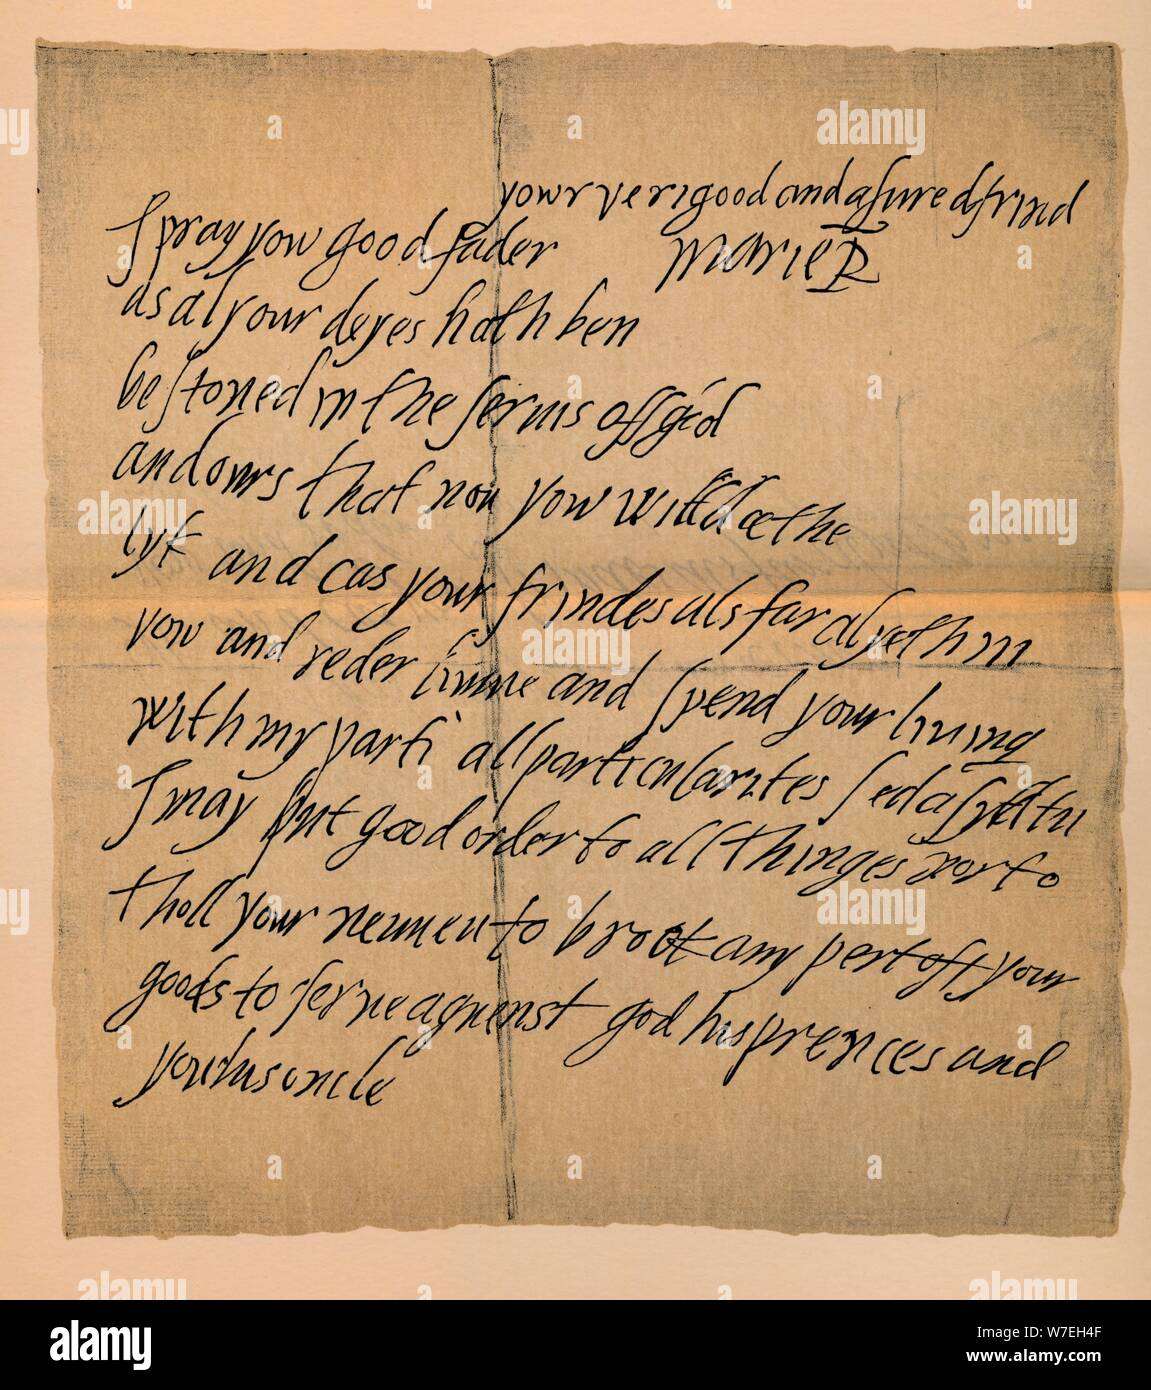 yowr veri good and asured frind
I pray yow good fader
Marie R
as al your deyes hath ben
bestoued in the seruis off god
and owrs that nou yow will dæ the
lyk and cas your frindes als far as lyeth in
yow and reder and spend your liuing
with my parti all particularites sed asyd tu
I may put good order to all thinges nor to
tholl your neuueu to brook any pert off your
goods to serue agaenst god his prences and
yow his oncle
alamy
Image ID: W7EH4F
www.alamy.com